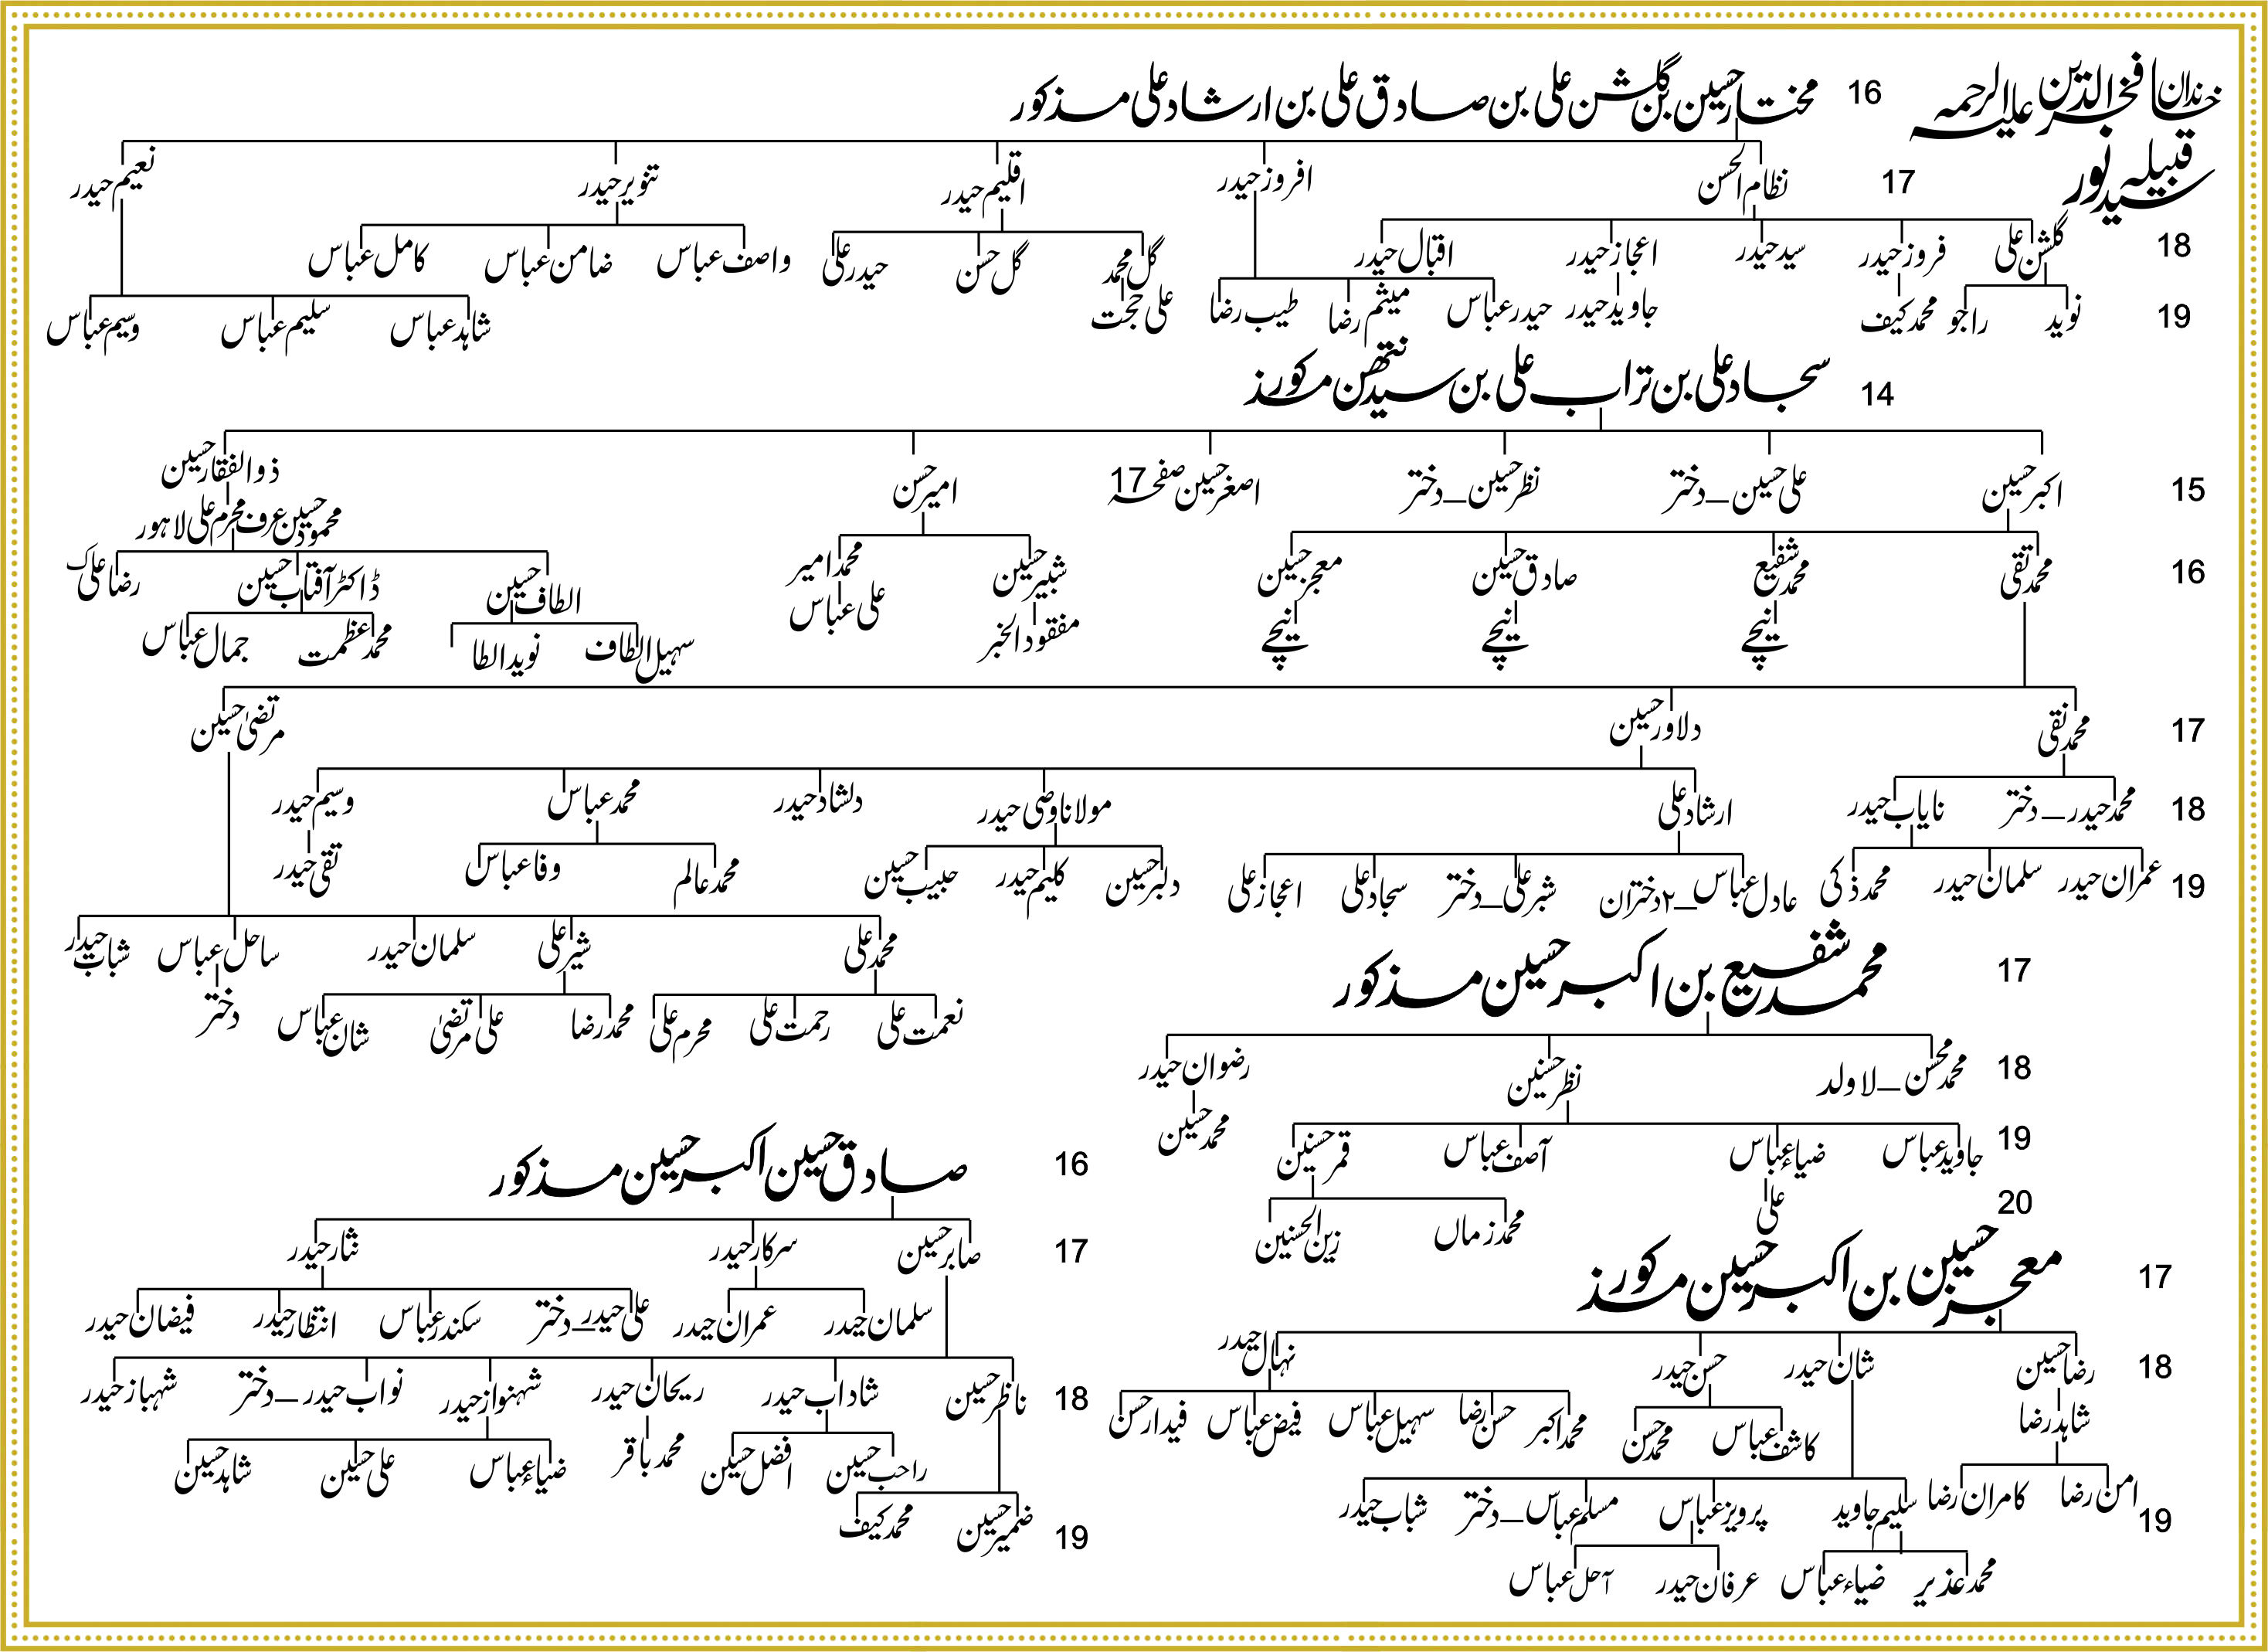 خاندان فخرالدین علیہ الرحمہ
قبیلہ سید نور
16 مختار حسین بن گلشن علی بن صادق علی بن ارشاد علی مذکور
17 نظام الحسن افروز حیدر اقلیم حیدر تنویر حیدر نعیم حیدر
18 گلشن علی فروز حیدر سید حیدر اعجاز حیدر اقبال حیدر گل محمد گل حسن حیدر علی واصف عباس ضامن عباس کامل عباس
19 نوید راجو محمد کیف جاوید حیدر حیدر عباس میثم رضا طیب رضا علی حجت شاہد عباس سلیم عباس وسیم عباس
14 سجاد علی بن تراب علی بن سید نتھن مذکور
15 اکبر حسین علی حسین_دختر نظر حسین_دختر اصغر حسین صفحہ 17 امیر حسن ذوالفقار حسین
محمود حسین عرف محرم علی لاہور
16 محمد تقی محمد شفیع صادق حسین معجز حسین شبیر حسین محمد امیر الطاف حسین ڈاکٹر آفتاب حسین رضا علی
نیچے نیچے نیچے مفقود الخبر علی عباس سہیل الطاف نوید الطا محمد عظمت جمال عباس
17 محمد نقی دلاور حسین مرتضیٰ حسین
18 محمد حیدر_دختر نایاب حیدر ارشاد علی مولانا وصی حیدر دلشاد حیدر محمد عباس وسیم حیدر
19 عمران حیدر سلمان حیدر محمد ذکی عادل عباس_۲دختران شبر علی_دختر سجاد علی اعجاز علی دلبر حسین کلیم حیدر حبیب حسین محمد عالم وفا عباس تقی حیدر
محمد علی شیر علی سلمان حیدر ساحل عباس شباب حیدر
نعمت علی رحمت علی محرم علی محمد رضا علی مرتضیٰ شان عباس دختر
17 محمد شفیع بن اکبر حسین مذکور
18 محمد محسن_لا ولد نظر حسنین رضوان حیدر
19 جاوید عباس ضیاء عباس آصف عباس قمر حسنین محمد حسین
20 علی محمد زماں زین الحسنین
16 صادق حسین اکبر حسین مذکور
17 صابر حسین سرکار حیدر نثار حیدر
سلمان حیدر عمران حیدر علی حیدر_دختر سکندر عباس انتظار حیدر فیضان حیدر
18 ناظر حسین شاداب حیدر ریحان حیدر شہنواز حیدر نواب حیدر_دختر شہباز حیدر
راحب حسین افضل حسین محمد باقر ضیاء عباس علی حسین شاہد حسین
19 ضمیر حسین محمد کیف
17 معجز حسین بن اکبر حسین مذکور
18 رضا حسین شان حیدر حسن حیدر نہال حیدر
شاہد رضا کاشف عباس محمد حسن محمد اکبر حسن رضا سہیل عباس فیض عباس فیدار حسن
19 امن رضا کامران رضا سلیم جاوید پرویز عباس مسلم عباس_دختر شباب حیدر
محمد عذیر ضیاء عباس عرفان حیدر آحل عباس